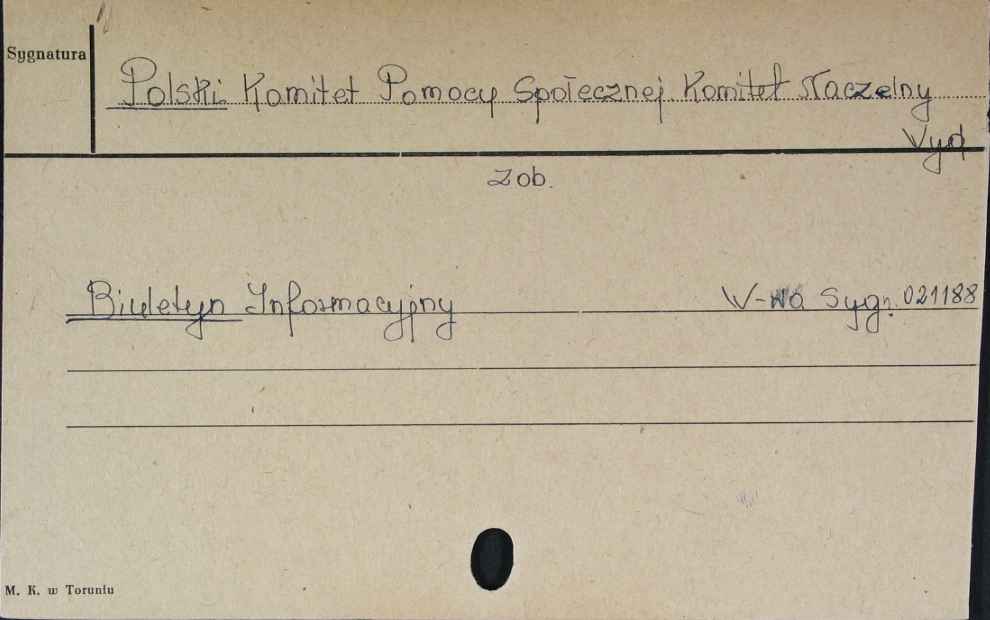 Sygnatura
Polski Komitet Pomocy Społecznej Komitet Naczelny
Wyd
Zob.
Biuletyn Informacyjny W-wa Sygn. 021188
M. K. w Toruniu